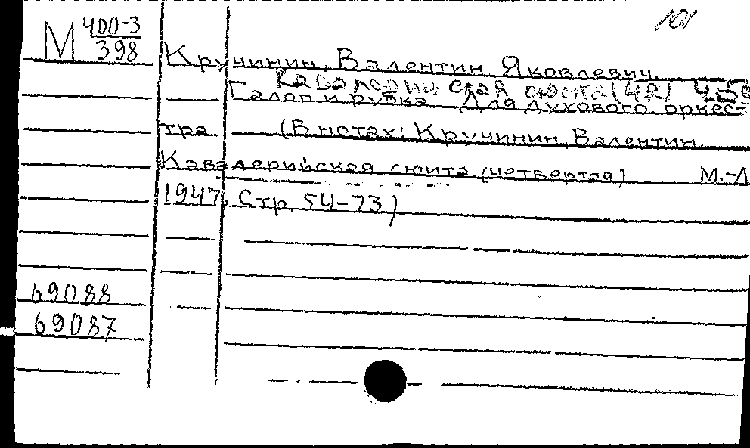 М 400-3
398
Кручинин, Валентин Яковлевич.
Кавалерийская сюита (4я)
Галоп и рубка. Для духового оркес-
тра. (В нотах: Кручинин, Валентин
Кавалерийская сюита (четвертая) М.-Л
1947, Стр. 54-73)
69088
69087